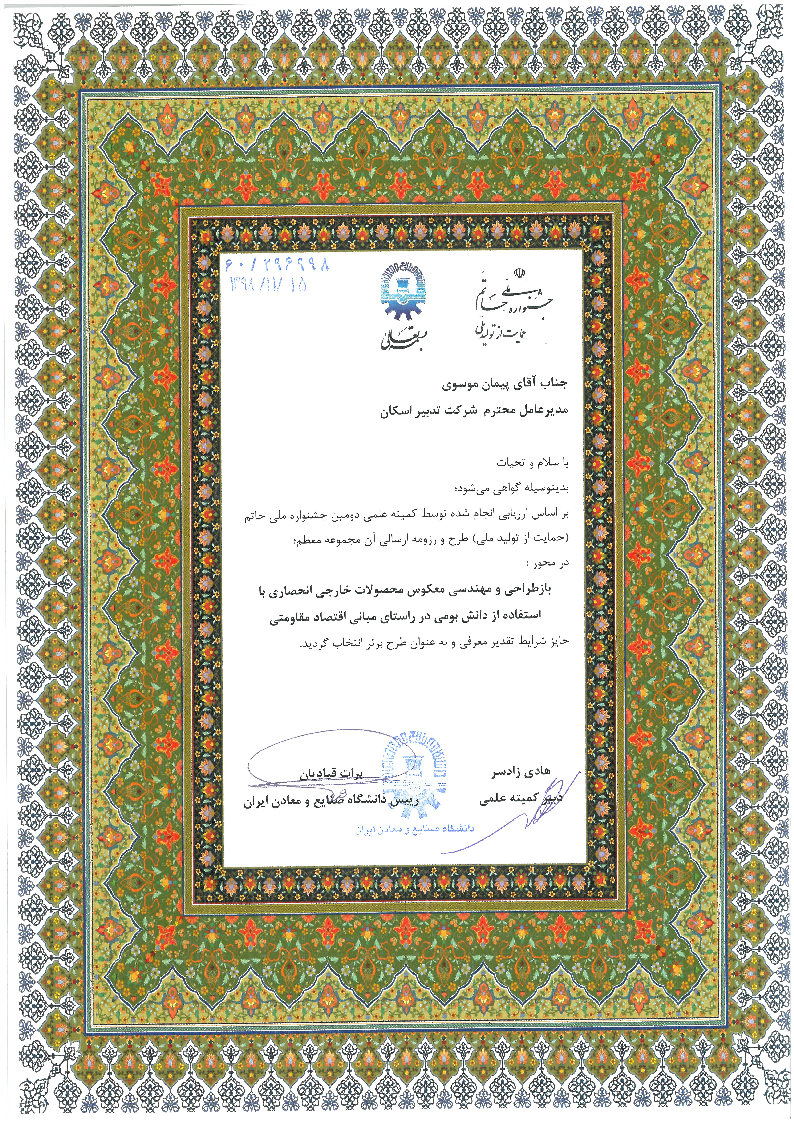 ۶۰/۲۹۶۹۹۸
۱۳۹۸/۱۲/۱۵
جشنواره ملی حاتم
حمایت از تولید ملی
جناب آقای پیمان موسوی
مدیرعامل محترم شرکت تدبیر اسکان
با سلام و تحیات
بدینوسیله گواهی می‌شود؛
بر اساس ارزیابی انجام شده توسط کمیته علمی دومین جشنواره ملی حاتم
(حمایت از تولید ملی) طرح و رزومه ارسالی آن مجموعه معظم؛
در محور :
بازطراحی و مهندسی معکوس محصولات خارجی انحصاری با
استفاده از دانش بومی در راستای مبانی اقتصاد مقاومتی
حایز شرایط تقدیر معرفی و به عنوان طرح برتر انتخاب گردید.
هادی زادسر
دبیر کمیته علمی
برات قبادیان
رییس دانشگاه صنایع و معادن ایران
دانشگاه صنایع و معادن ایران